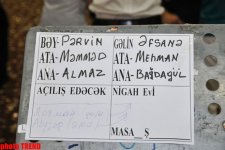 BƏY-PƏRVİN GƏLİN ƏFSANƏ
ATA-MƏMMƏD ATA-MEHMAN
ANA-ALMAZ ANA-BAĞDAGÜL
AÇILIŞ EDƏCƏK NİGAH EVİ
MASA Ş
photo TREND